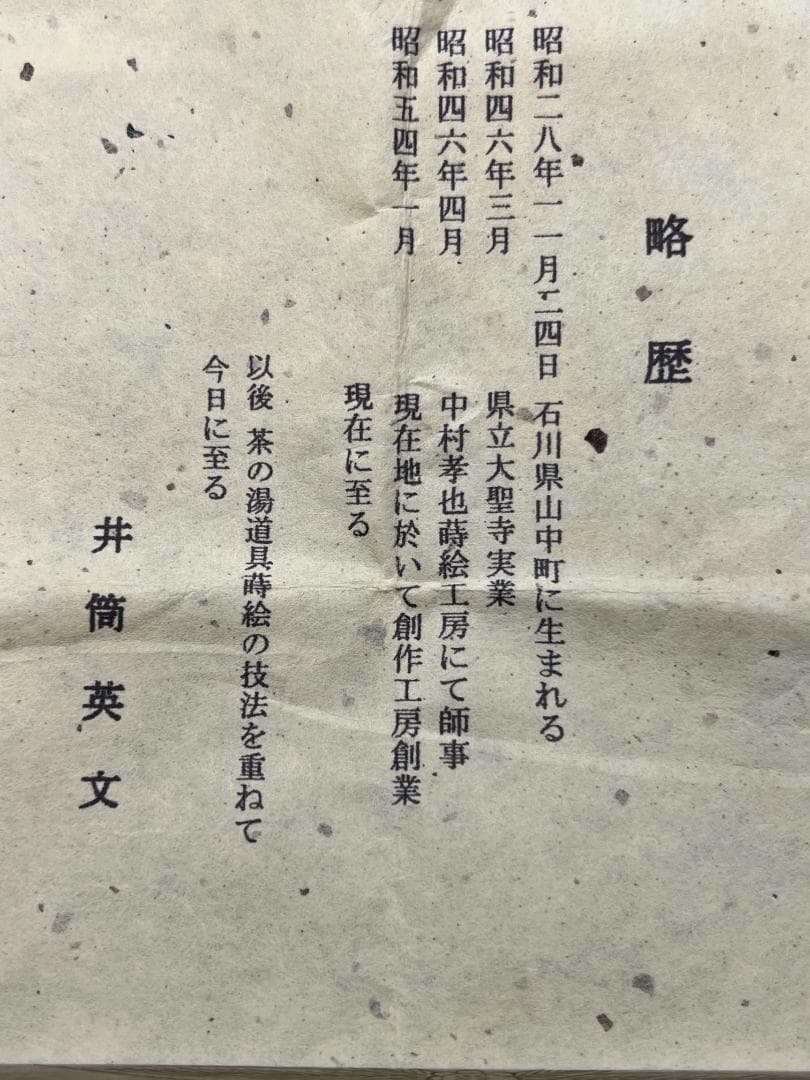 略歴
昭和二八年一一月二四日 石川県山中町に生まれる
昭和四六年三月 県立大聖寺実業
昭和四六年四月 中村孝也蒔絵工房にて師事
昭和五四年一月 現在地に於いて創作工房創業
現在に至る
以後 茶の湯道具蒔絵の技法を重ねて
今日に至る
井筒英文